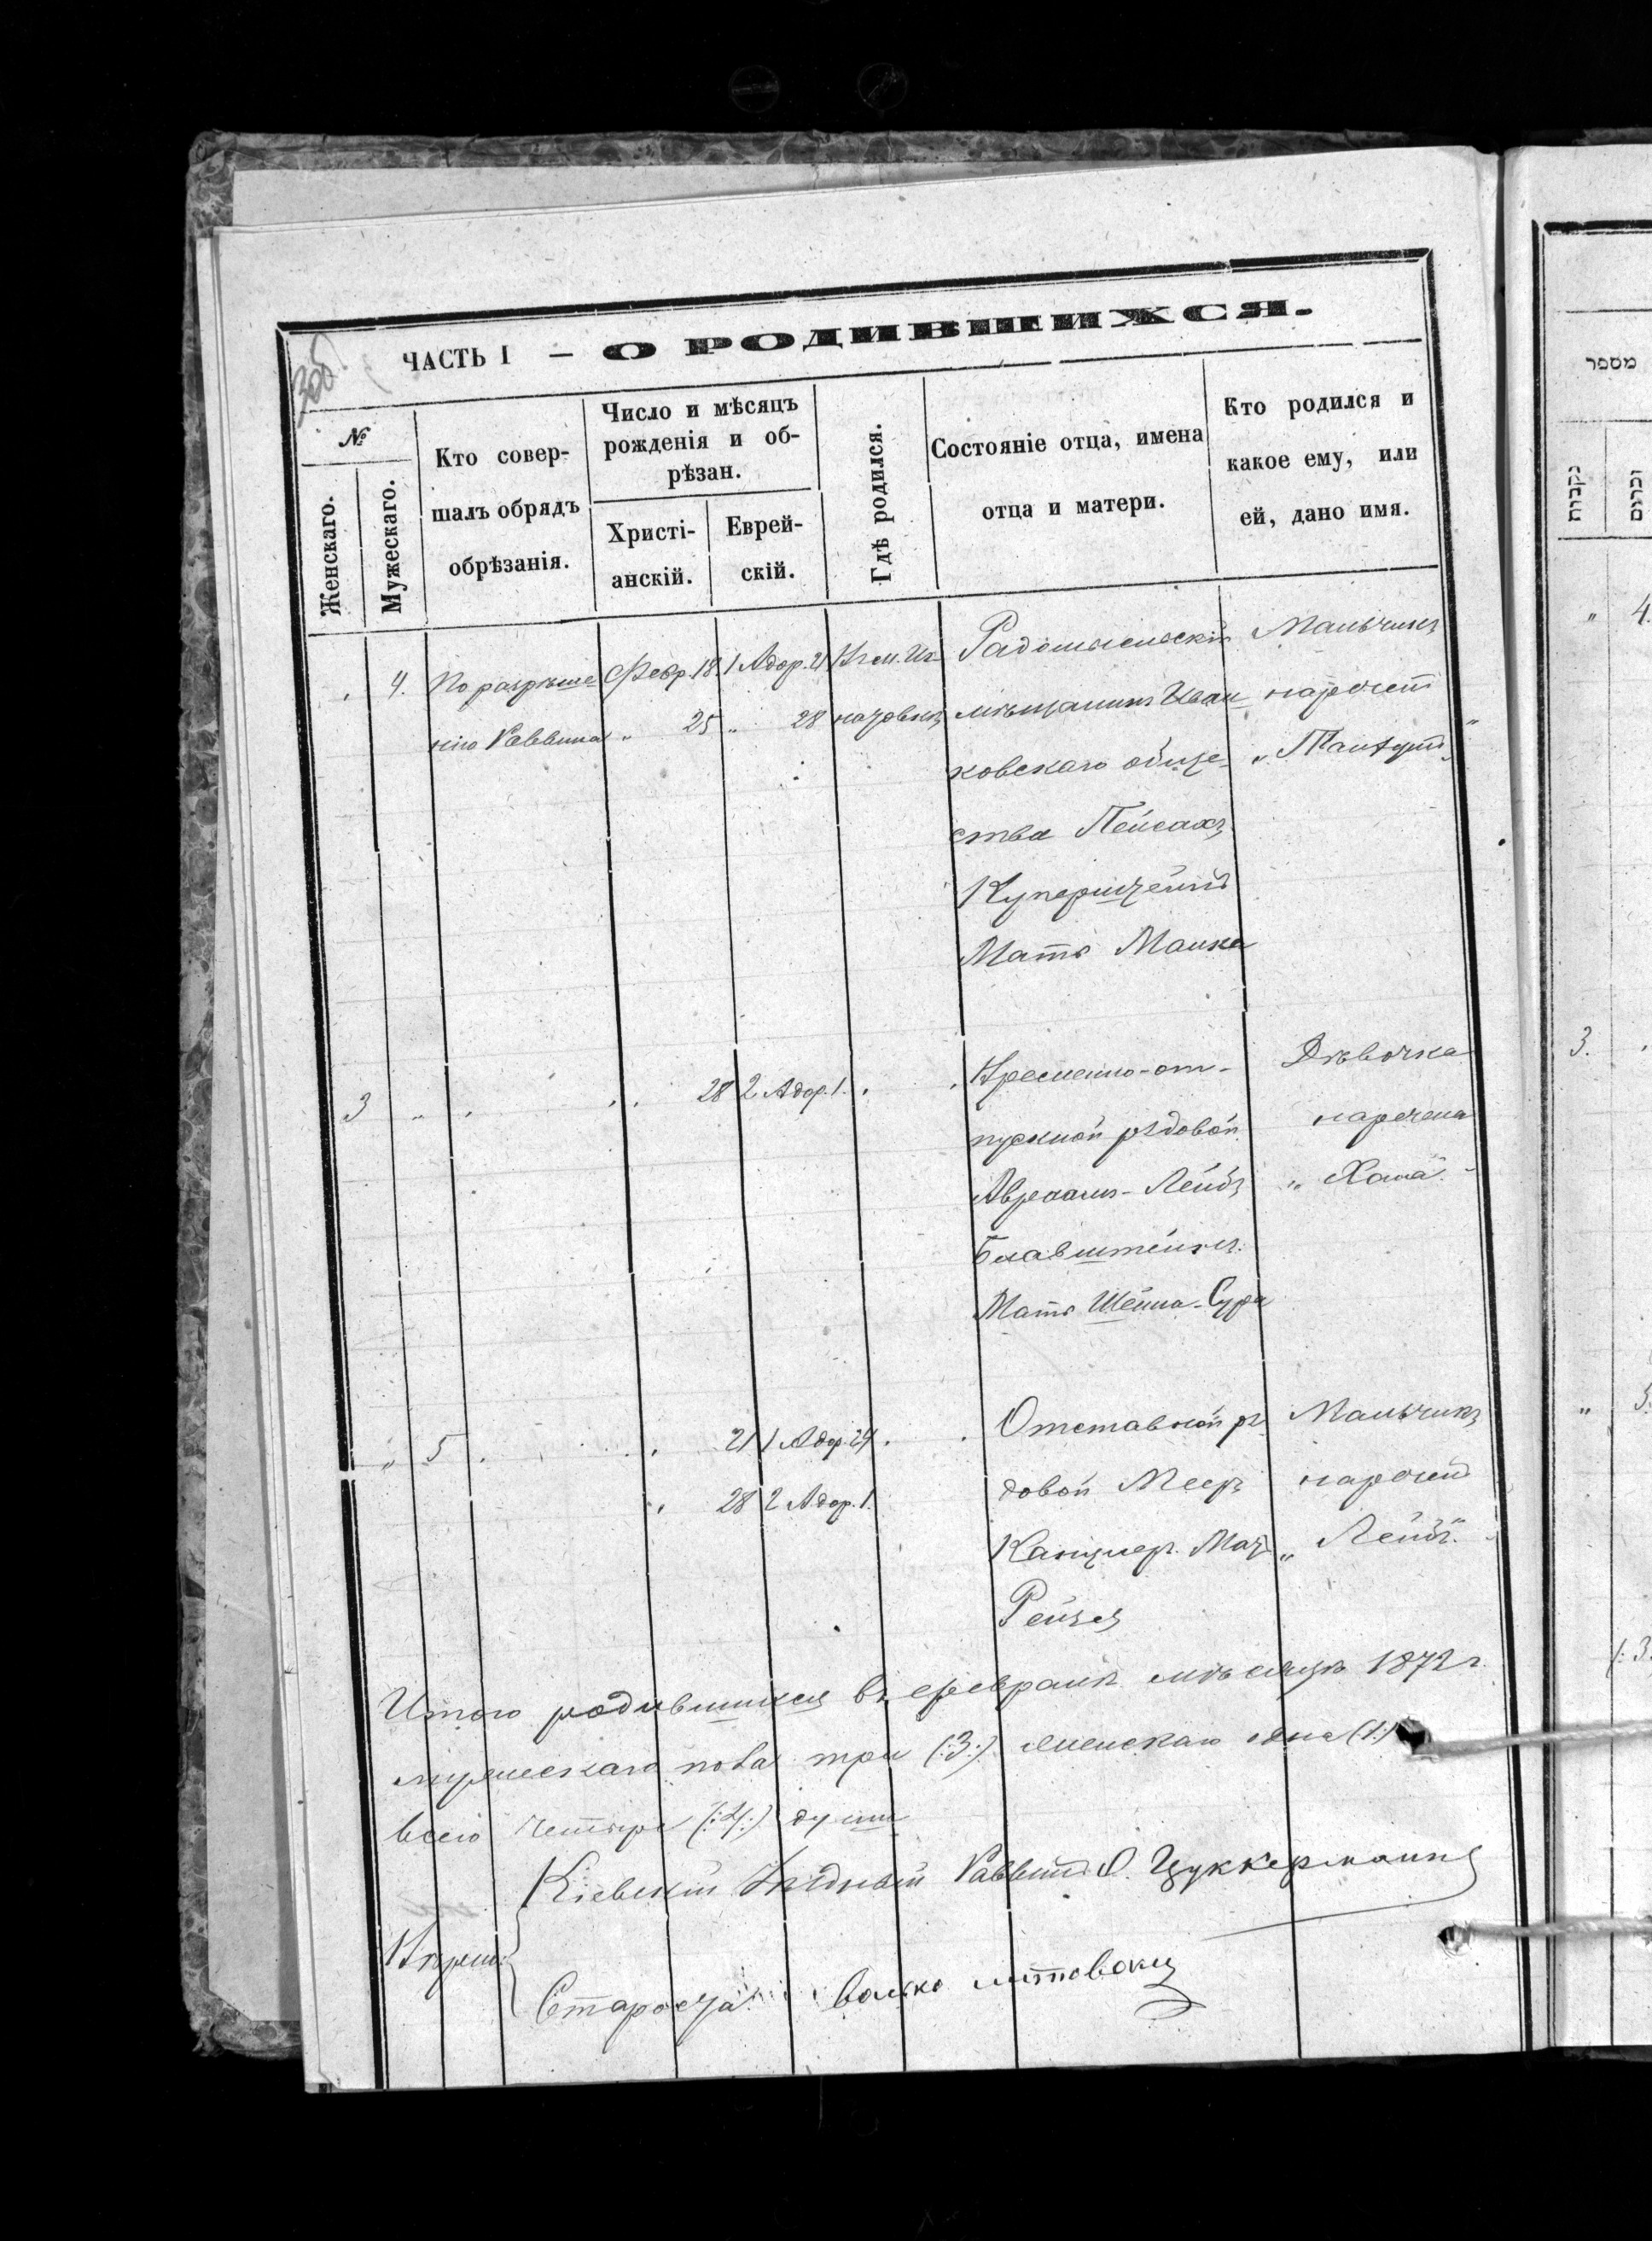 ЧАСТЬ I — О РОДИВШИХСЯ.
№
Женскаго.
Мужескаго.
Кто совер-
шалъ обрядъ
обрѣзанія.
Число и мѣсяцъ
рожденія и об-
рѣзан.
Христі-
анскій.
Еврей-
скій.
Гдѣ родился.
Состояніе отца, имена
отца и матери.
Кто родился и
какое ему, или
ей, дано имя.
4.
По разрѣше-
нію Раввина
Февр. 18.
" 25
1 Адор. 21
" 28
Въ м. Иг-
натовкѣ
Радомысльскій
мѣщанинъ Иван-
ковскаго обще-
ства Пейсахъ
Мать Малка
Мальчикъ
нареченъ
3
28
2 Адор. 1.
Временно-от-
пускной рядовой
Авраамъ-Лейбъ
Блавштейнъ.
Мать Шейна-Сура
Дѣвочка
наречена
" Хана "
" 5
21
28
1 Адор. 24
2 Адор. 1.
Отставной ря
довой Меер
Канцлер. Мать
Рейзя
Мальчикъ
нареченъ
" Лейбъ "
Итого родившихся въ февралѣ мѣсяцѣ 1872 г.
мужескаго пола три (:3:) женскаго одна (:1:)
всего четыре (:4:) души
Кіевскій Уѣздный Раввинъ О. Цуккерманъ
Староста
מספר
נקבות
זכרים
" 4.
3.
" 5.